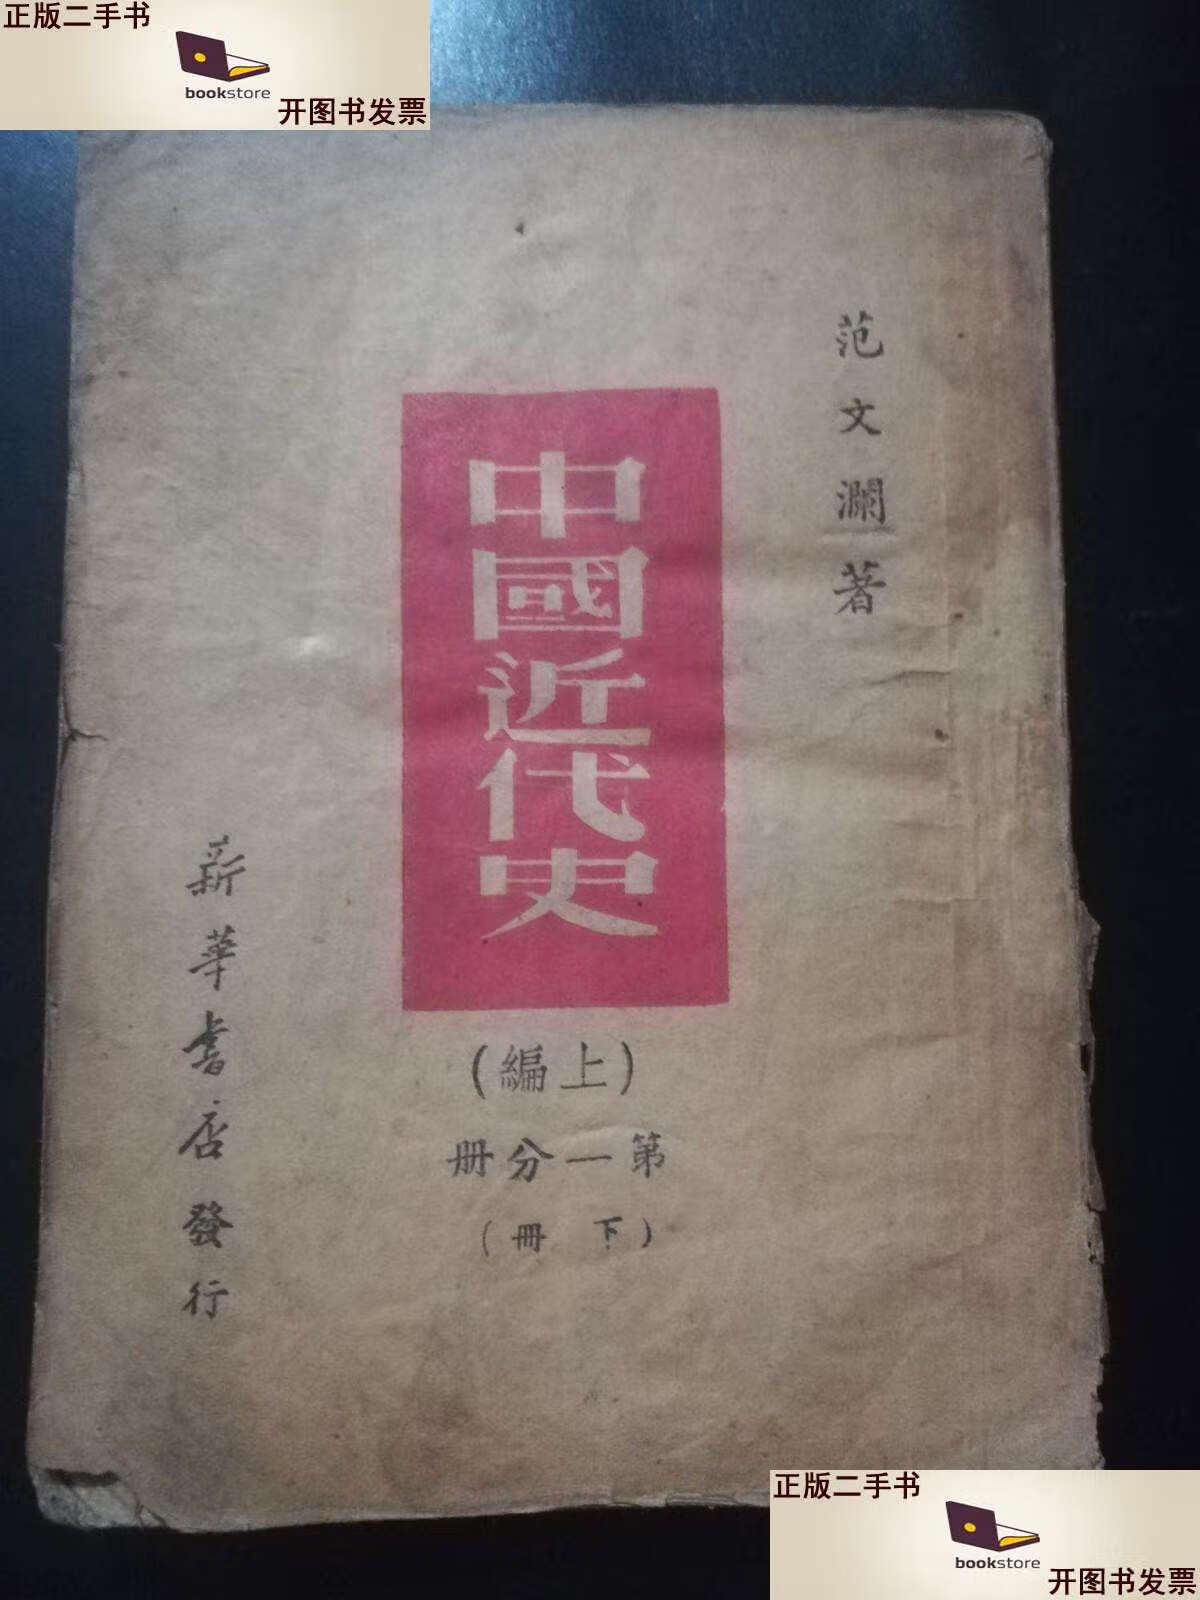 正版二手书
bookstore
开图书发票
范文瀾著
中國近代史
(上編)
第一分册
(下冊)
新華書店發行
正版二手书
bookstore
开图书发票